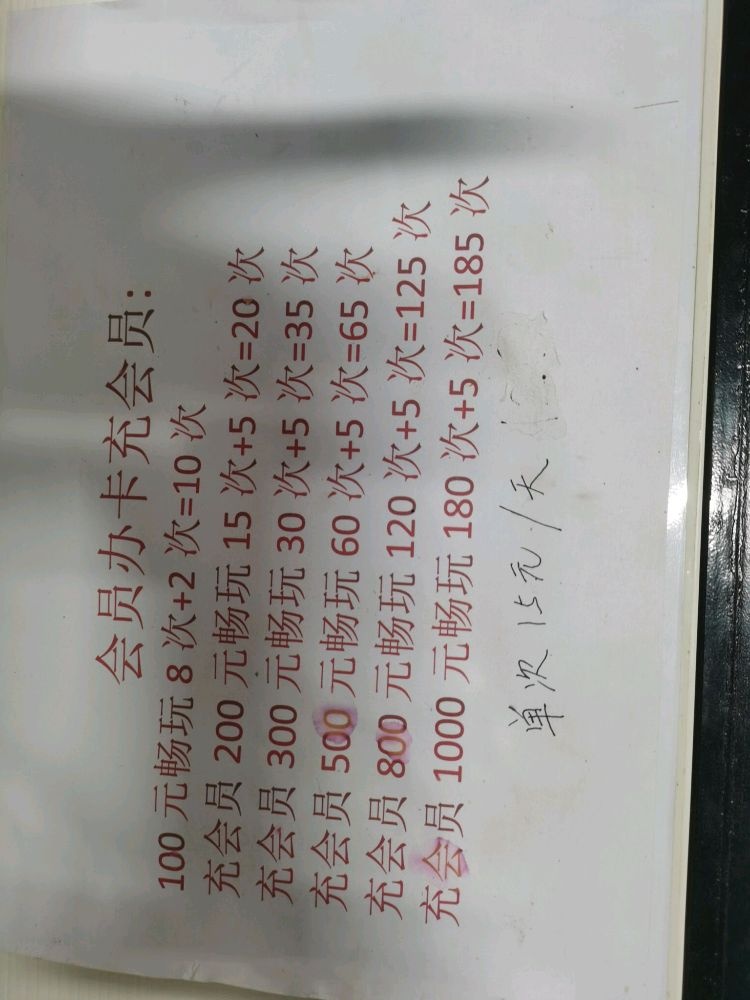 会员办卡充会员:
100 元畅玩 8 次+2 次=10 次
充会员 200 元畅玩 15 次+5 次=20 次
充会员 300 元畅玩 30 次+5 次=35 次
充会员 500 元畅玩 60 次+5 次=65 次
充会员 800 元畅玩 120 次+5 次=125 次
充会员 1000 元畅玩 180 次+5 次=185 次
单次 15元/天